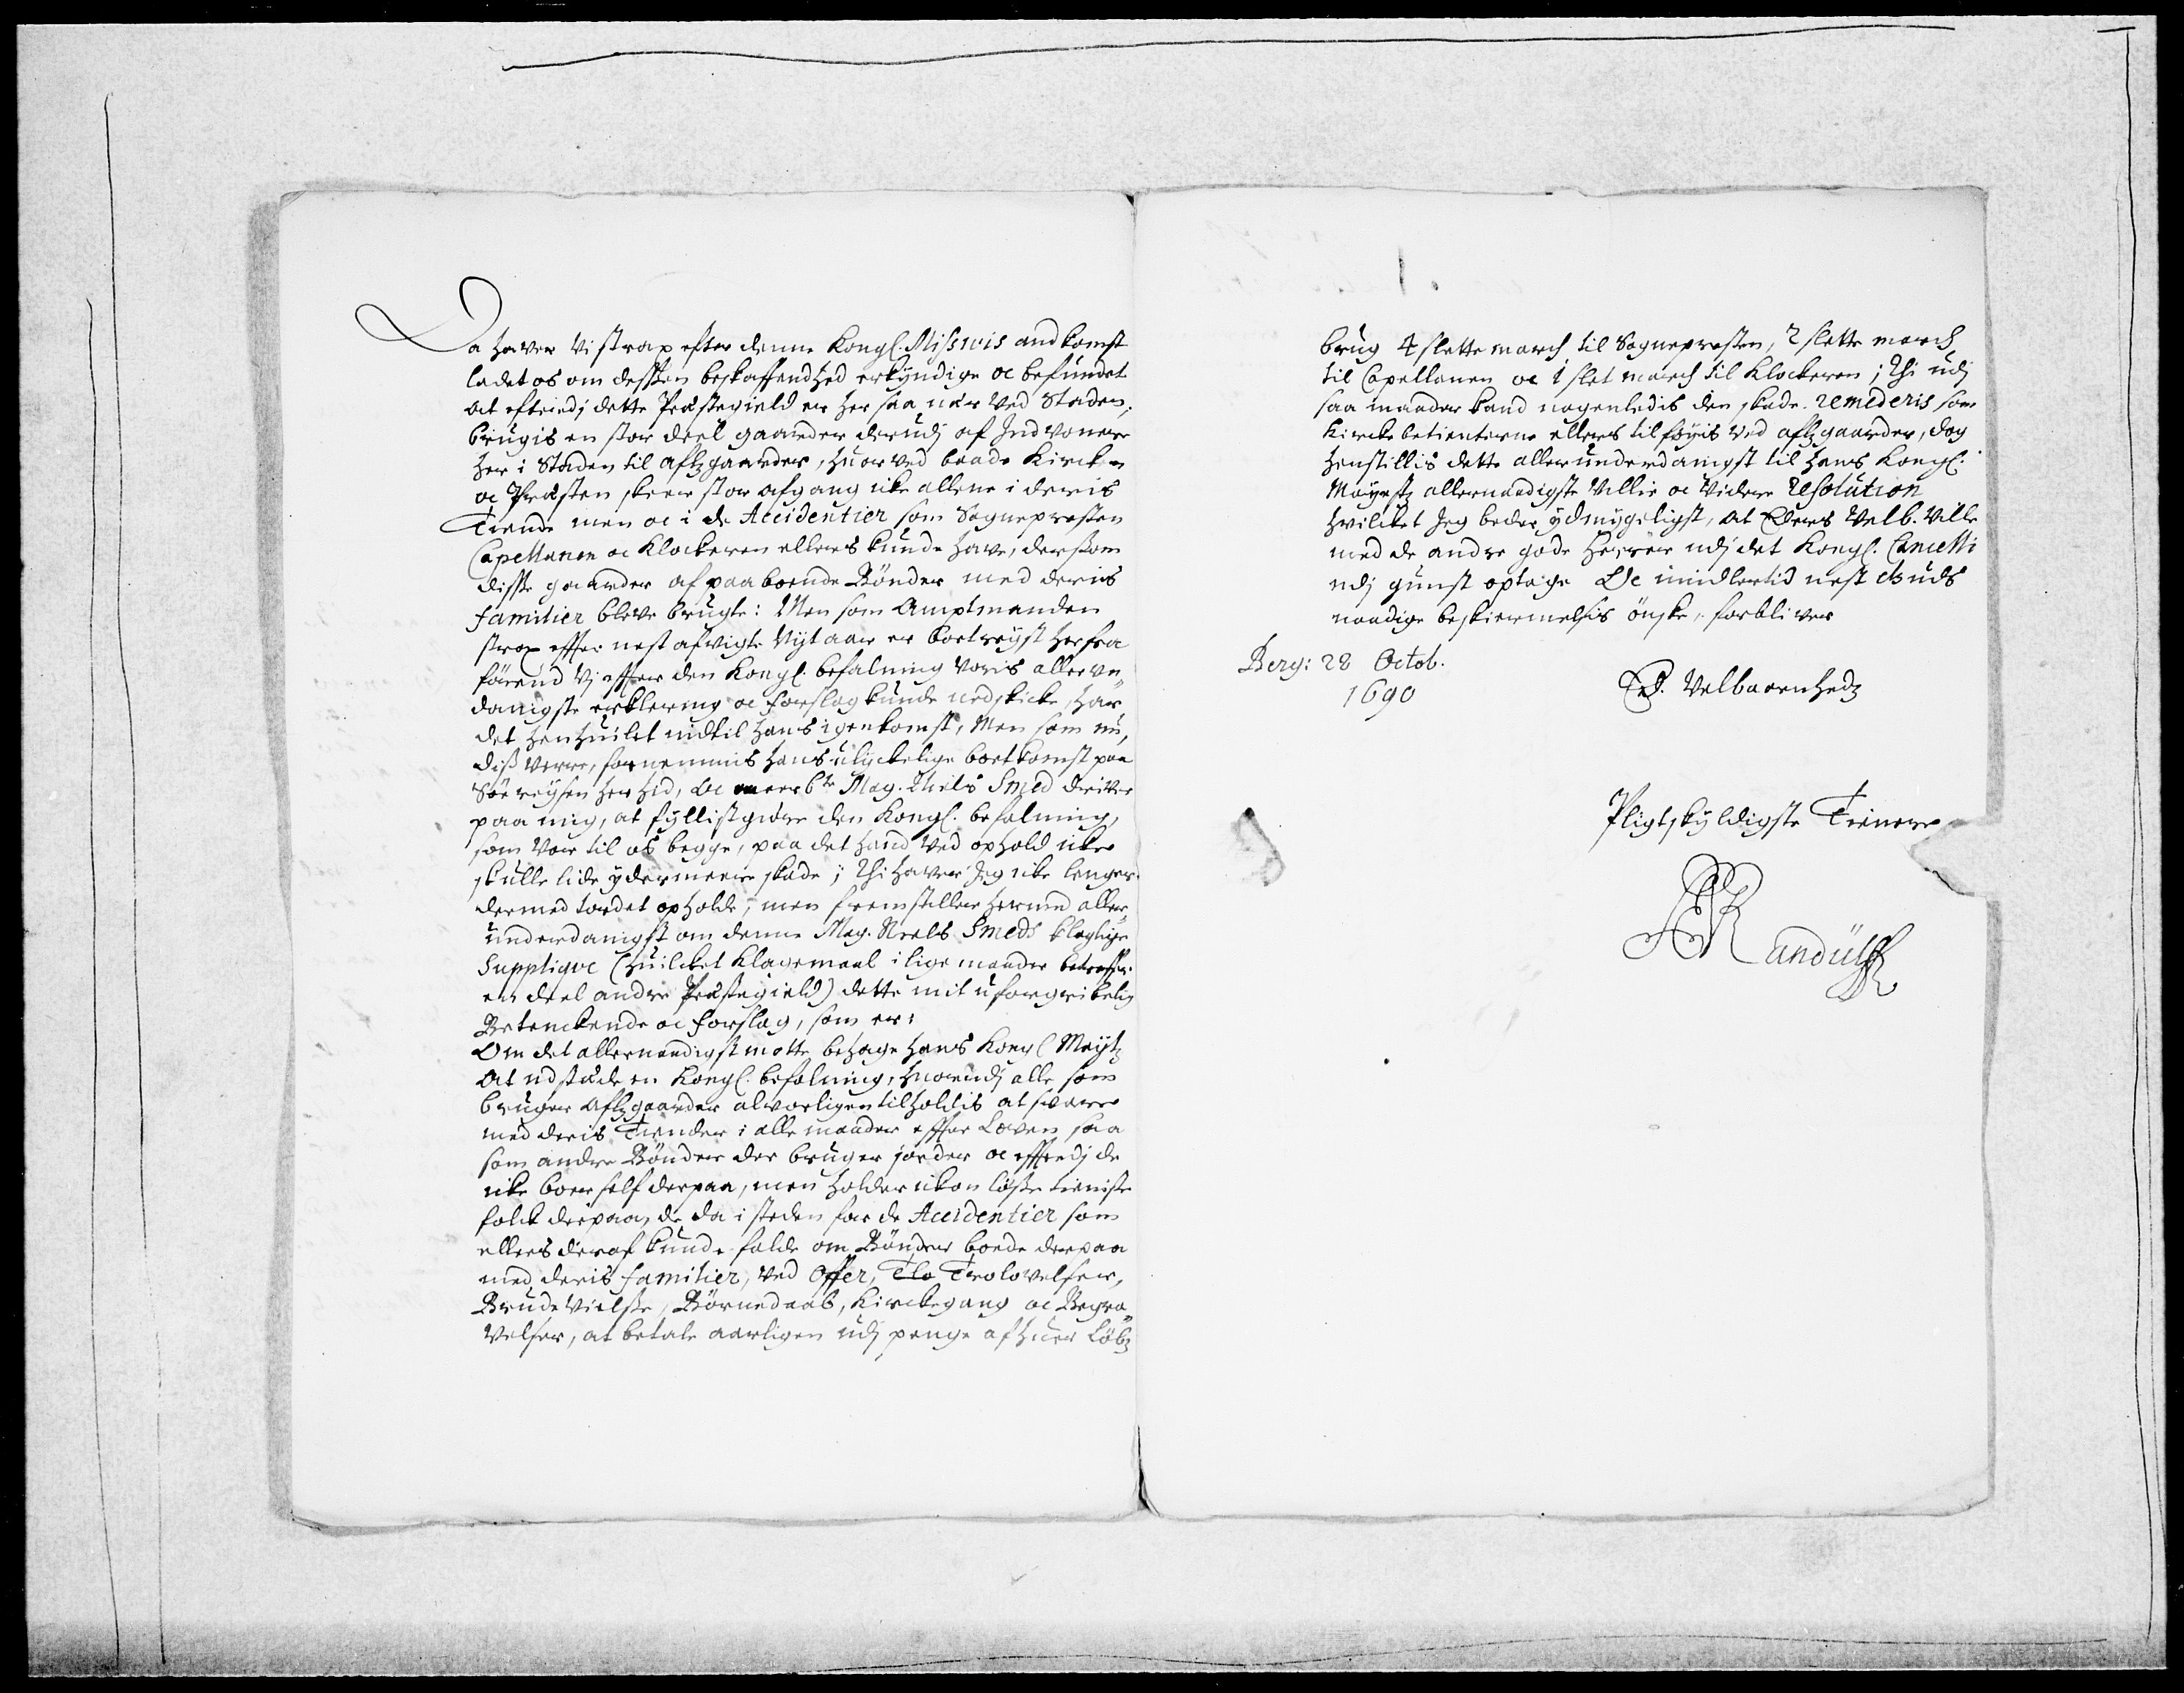 Da haver Vi strax efter denne Kongl. Missivis andkomst
ladet os om dessen beskaffendhed erkyndige oc befundet
At efterdj dette Præstegield er her saa nær Ved Staden
brugis en stor deel gaarder derudj af Indvonere
her i Staden til aflz gaarder, huorved baade Kircken
oc Præsten skeer stor afgang icke allene i deris
Tiende men oc i de Accidentier som Sognepresten
Capellanen oc Klockeren ellers kunde have, dersom
disse gaarder af paaboende Bönder med deris
familier bleve brugte: Men som Amptmanden
strax effter nest afvigte Nytaar er bortreyst herfra
förend Vj effter den Kongl. befalning voris allerun„
danigste erklering oc forslag kunde nedskicke, har
det henhuilet indtil hans igenkomst, Men som nu,
diß verre, fornemmis hans ulyckelige bortkomst paa
Söe reysen her hid, Oc meerbte Mag. Niels Smed driver
paa mig, at fyllistgiöre den Kongl. befalning,
som Var til os begge, paa det hand Ved ophold icke
skulle lide ydermeere skade; Thi haver Jeg icke lenger
dermed tordet opholde, men fremstiller hermed aller„
underdanigst om denne Mag. Niels Smeds klaglige
Supplique (huilcket Klagemaal i lige maader betreffer
en deel andre Præstegield) dette mit uforgribelig
Betenckende oc forslag, som er:
Om det allernaadigst motte behage Hans Kongl Mayts
At udstæde en Kongl. befalning, huorudj alle som
bruger Aflz gaarder alvorligen tilholdis at svare
med deris Tiender i alle maader effter Loven saa
som andre Bönder der bruger jorder oc effterdj de
icke boer self derpaa, men holder ickon löße tieniste
folck derpaa, de da i steden for de Accidentier som
ellers deraf kunde falde om Bönder boede derpaa
med deris familier, Ved Offer, Tlo Trolovelser,
Brude Vielße, Börnedaab, Kirckegang oc Begra„
velser, at betale aarligen udj penge af huer Löbz
brug 4 slette march til Sognepresten, 2 slette march
til Capellanen oc 1 slet march til Klockeren; Thi udj
saa maader kand nogenledis den skade remederis som
Kircke betienterne ellers tilföyis Ved aflz gaarder, dog
henstillis dette allerunderdanigst til Hans Kongl.
Mayestz allernaadigste Villie oc Videre Resolution
Hvilcket Jeg beder ydmygeligst, At Eders Velb. Ville
med de andre gode Herrer udj det Kongl. Cancelli
udj gunst optage. Oc imidlertid nest Guds
naadige beskiermelsis önske, forbliver
Berg: 28 Octob.
1690
Ed. Velbaarenhedz
Pligtskyldigste Tienere
Randulff